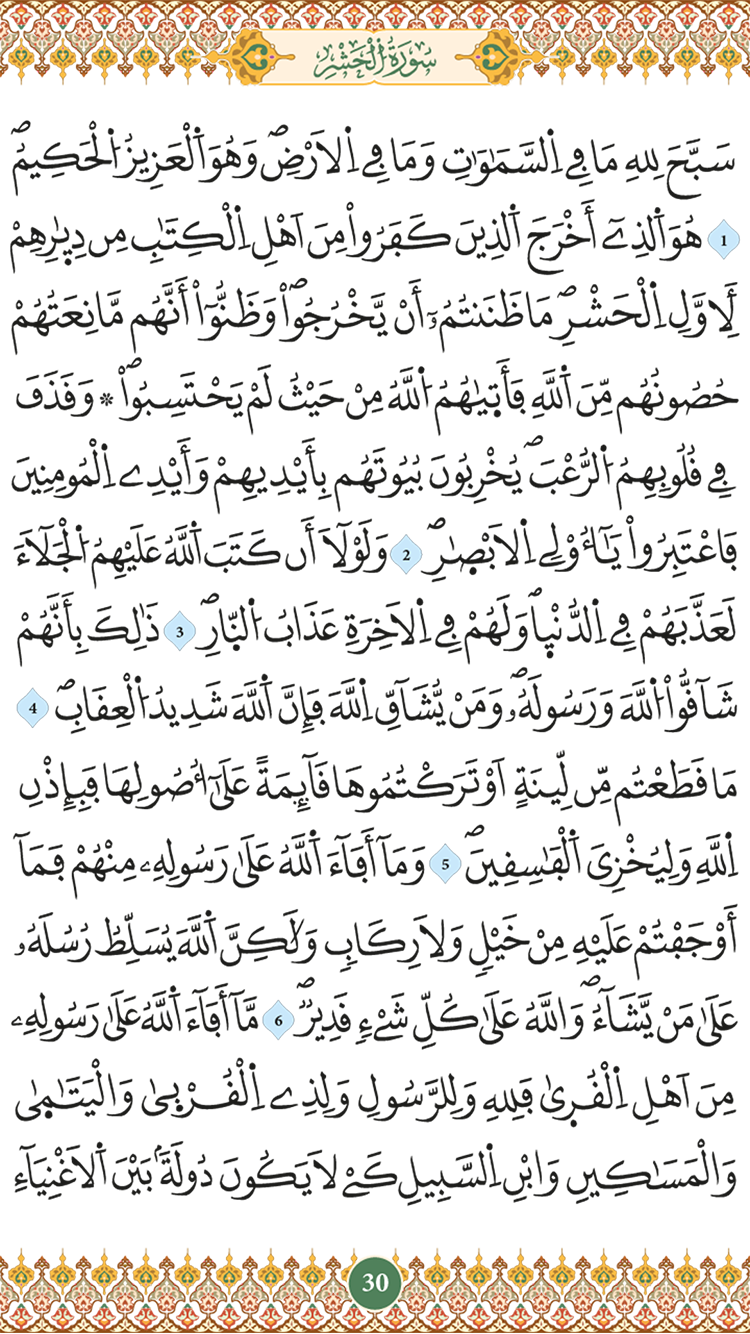 سُورَةُ اُ۬لْحَشْرِ
سَبَّحَ لِلهِ مَا فِے اِ۬لسَّمَٰوَٰتِ وَمَا فِے اِ۬لَارْضِۖ وَهُوَ اَ۬لْعَزِيزُ اُ۬لْحَكِيمُۖ
1 هُوَ اَ۬لذِےٓ أَخْرَجَ اَ۬لذِينَ كَفَرُواْ مِنَ اَهْلِ اِ۬لْكِتَٰبِ مِن دِيٰ۪رِهِمْ
لِأَوَّلِ اِ۬لْحَشْرِۖ مَا ظَنَنتُمُۥٓ أَنْ يَّخْرُجُواْۖ وَظَنُّوٓاْ أَنَّهُم مَّانِعَتُهُمْ
حُصُونُهُم مِّنَ اَ۬للَّهِ فَأَت۪يٰهُمُ اُ۬للَّهُ مِنْ حَيْثُ لَمْ يَحْتَسِبُواْۖ * وَقَذَفَ
فِے قُلُوبِهِمُ اُ۬لرُّعْبَۖ يُخْرِبُونَ بُيُوتَهُم بِأَيْدِيهِمْ وَأَيْدِے اِ۬لْمُومِنِينَ
فَاعْتَبِرُواْ يَٰٓأُوْلِے اِ۬لَابْصٰ۪رِۖ 2 وَلَوْلَآ أَن كَتَبَ اَ۬للَّهُ عَلَيْهِمُ اُ۬لْجَلَآءَ
لَعَذَّبَهُمْ فِے اِ۬لدُّنْي۪اۖ وَلَهُمْ فِے اِ۬لَاخِرَةِ عَذَابُ اُ۬لنّ۪ارِۖ 3 ذَٰلِكَ بِأَنَّهُمْ
شَآقُّواْ اُ۬للَّهَ وَرَسُولَهُۥۖ وَمَنْ يُّشَآقِّ اِ۬للَّهَ فَإِنَّ اَ۬للَّهَ شَدِيدُ اُ۬لْعِقَابِۖ 4
مَا قَطَعْتُم مِّن لِّينَةٍ اَوْ تَرَكْتُمُوهَا قَآئِمَةً عَلَىٰٓ أُصُولِهَا فَبِإِذْنِ
اِ۬للَّهِ وَلِيُخْزِيَ اَ۬لْفَٰسِقِينَۖ 5 وَمَآ أَفَآءَ اَ۬للَّهُ عَلَىٰ رَسُولِهِۦ مِنْهُمْ فَمَآ
أَوْجَفْتُمْ عَلَيْهِ مِنْ خَيْلٖ وَلَا رِكَابٖ وَلَٰكِنَّ اَ۬للَّهَ يُسَلِّطُ رُسُلَهُۥ
عَلَىٰ مَنْ يَّشَآءُۖ وَاللَّهُ عَلَىٰ كُلِّ شَےْءٖ قَدِيرٞۖ 6 مَّآ أَفَآءَ اَ۬للَّهُ عَلَىٰ رَسُولِهِۦ
مِنَ اَهْلِ اِ۬لْقُر۪ىٰ فَلِلهِ وَلِلرَّسُولِ وَلِذِے اِ۬لْقُرْب۪ىٰ وَالْيَتَٰم۪ىٰ
وَالْمَسَٰكِينِ وَابْنِ اِ۬لسَّبِيلِ كَےْ لَا يَكُونَ دُولَةَۢ بَيْنَ اَ۬لَاغْنِيَآءِ
30